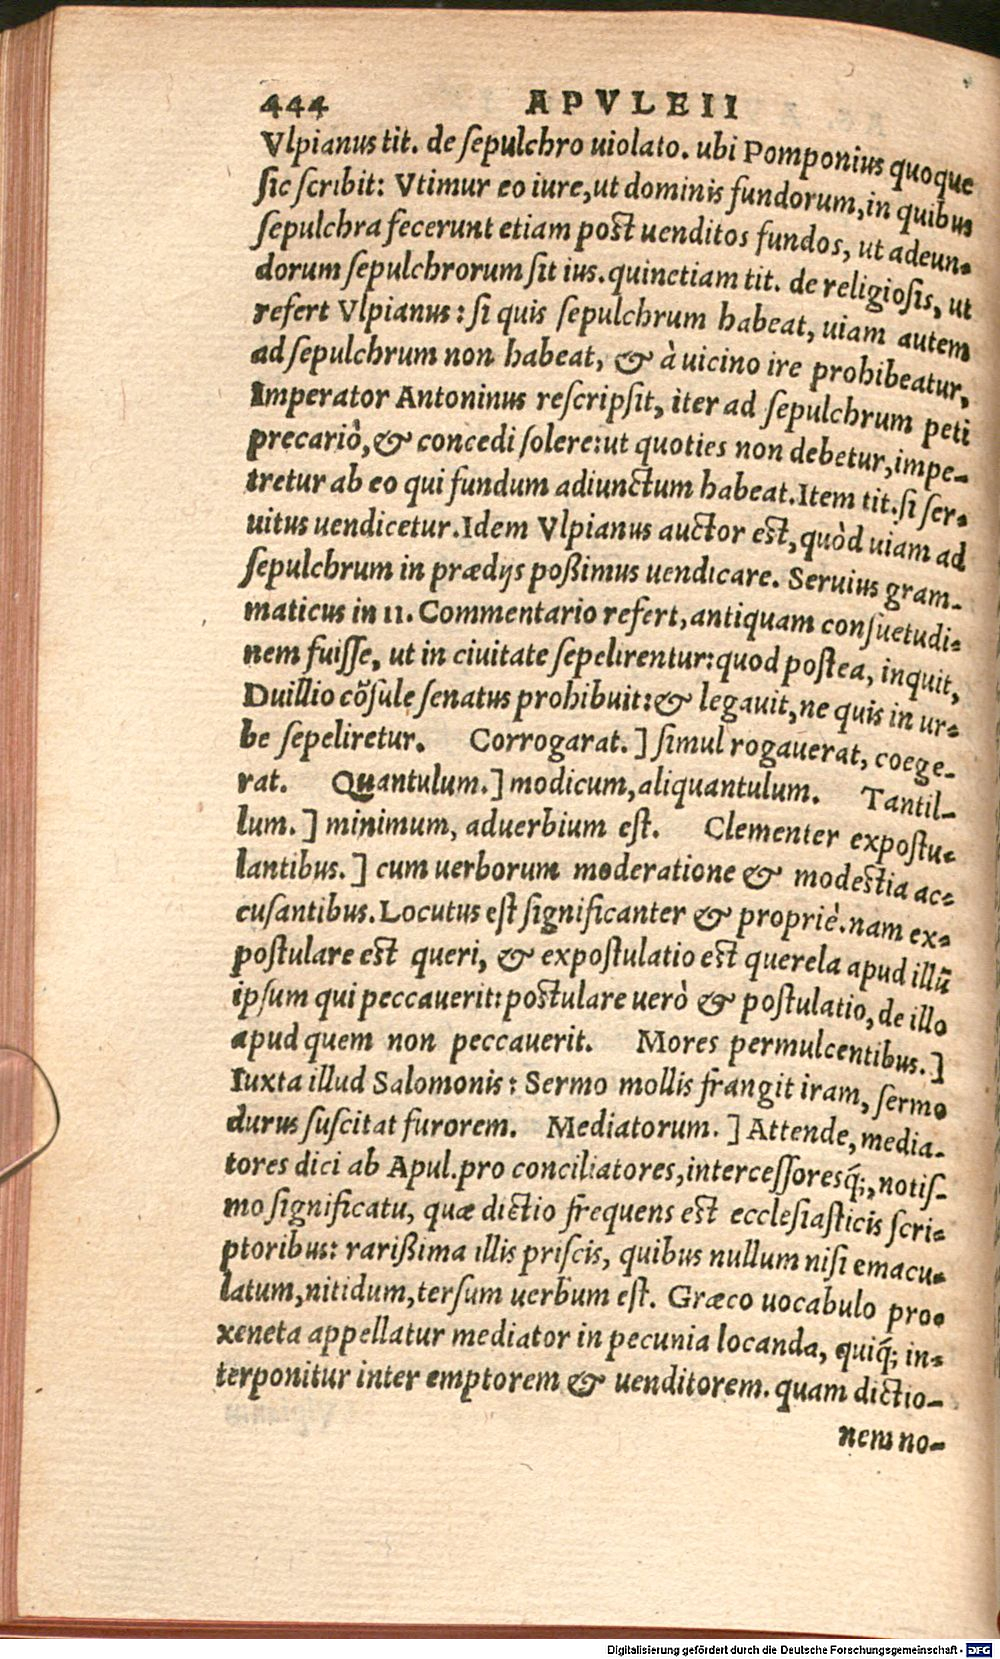 444 APVLEII
Vlpianus tit. de sepulchro uiolato. ubi Pomponius quoque
sic scribit: Vtimur eo iure, ut dominis fundorum, in quibus
sepulchra fecerunt etiam post uenditos fundos, ut adeun-
dorum sepulchrorum sit ius. quinetiam tit. de religiosis, ut
refert Vlpianus: si quis sepulchrum habeat, uiam autem
ad sepulchrum non habeat, & à uicino ire prohibeatur,
Imperator Antoninus rescripsit, iter ad sepulchrum peti
precariò, & concedi solere: ut quoties non debetur, impe-
tretur ab eo qui fundum adiunctum habeat. Item tit. si ser-
uitus uendicetur. Idem Vlpianus auctor est, quòd uiam ad
sepulchrum in prædijs poßimus uendicare. Seruius gram-
maticus in 11. Commentario refert, antiquam consuetudi-
nem fuisse, ut in ciuitate sepelirentur: quod postea, inquit,
Duillio cõsule senatus prohibuit: & legauit, ne quis in ur-
be sepeliretur. Corrogarat.] simul rogauerat, coege-
rat. Quantulum.] modicum, aliquantulum. Tantil-
lum.] minimum, aduerbium est. Clementer expostu-
lantibus.] cum uerborum moderatione & modestia ac-
cusantibus. Locutus est significanter & propriè. nam ex-
postulare est queri, & expostulatio est querela apud illũ
ipsum qui peccauerit: postulare uerò & postulatio, de illo
apud quem non peccauerit. Mores permulcentibus.]
Iuxta illud Salomonis: Sermo mollis frangit iram, sermo
durus suscitat furorem. Mediatorum.] Attende, media-
tores dici ab Apul. pro conciliatores, intercessoresq́;, notis-
mo significatu, quæ dictio frequens est ecclesiasticis scri-
ptoribus: rarißima illis priscis, quibus nullum nisi emacu-
latum, nitidum, tersum uerbum est. Græco uocabulo pro-
xeneta appellatur mediator in pecunia locanda, quiq́; in-
terponitur inter emptorem & uenditorem. quam dictio-
nem no-
Digitalisierung gefördert durch die Deutsche Forschungsgemeinschaft - DFG